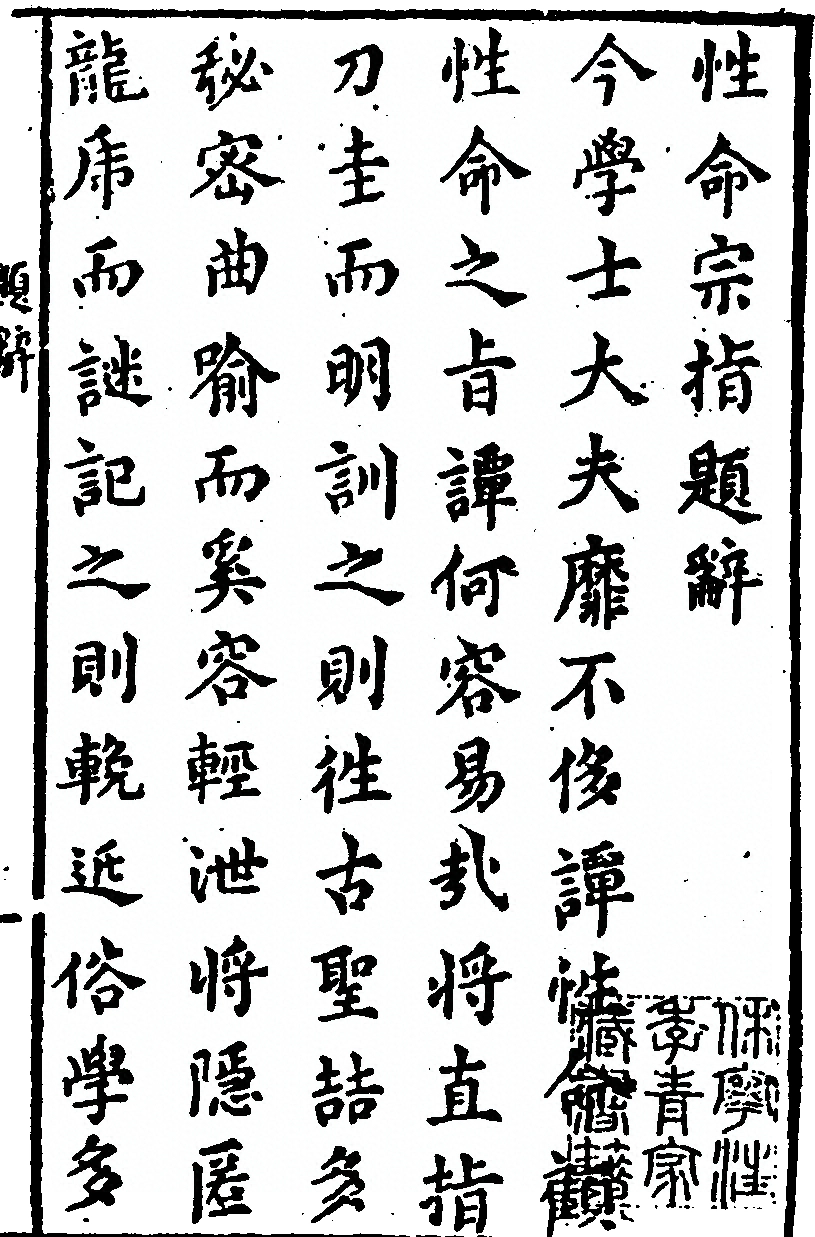 性命宗指題辭
今學士大夫靡不侈譚性命顧
性命之旨譚何容易哉將直指
刀圭而明訓之則徃古聖喆多
秘密曲喻而奚容輕泄將隱匿
龍虎而謎記之則輓近俗學多
題辭